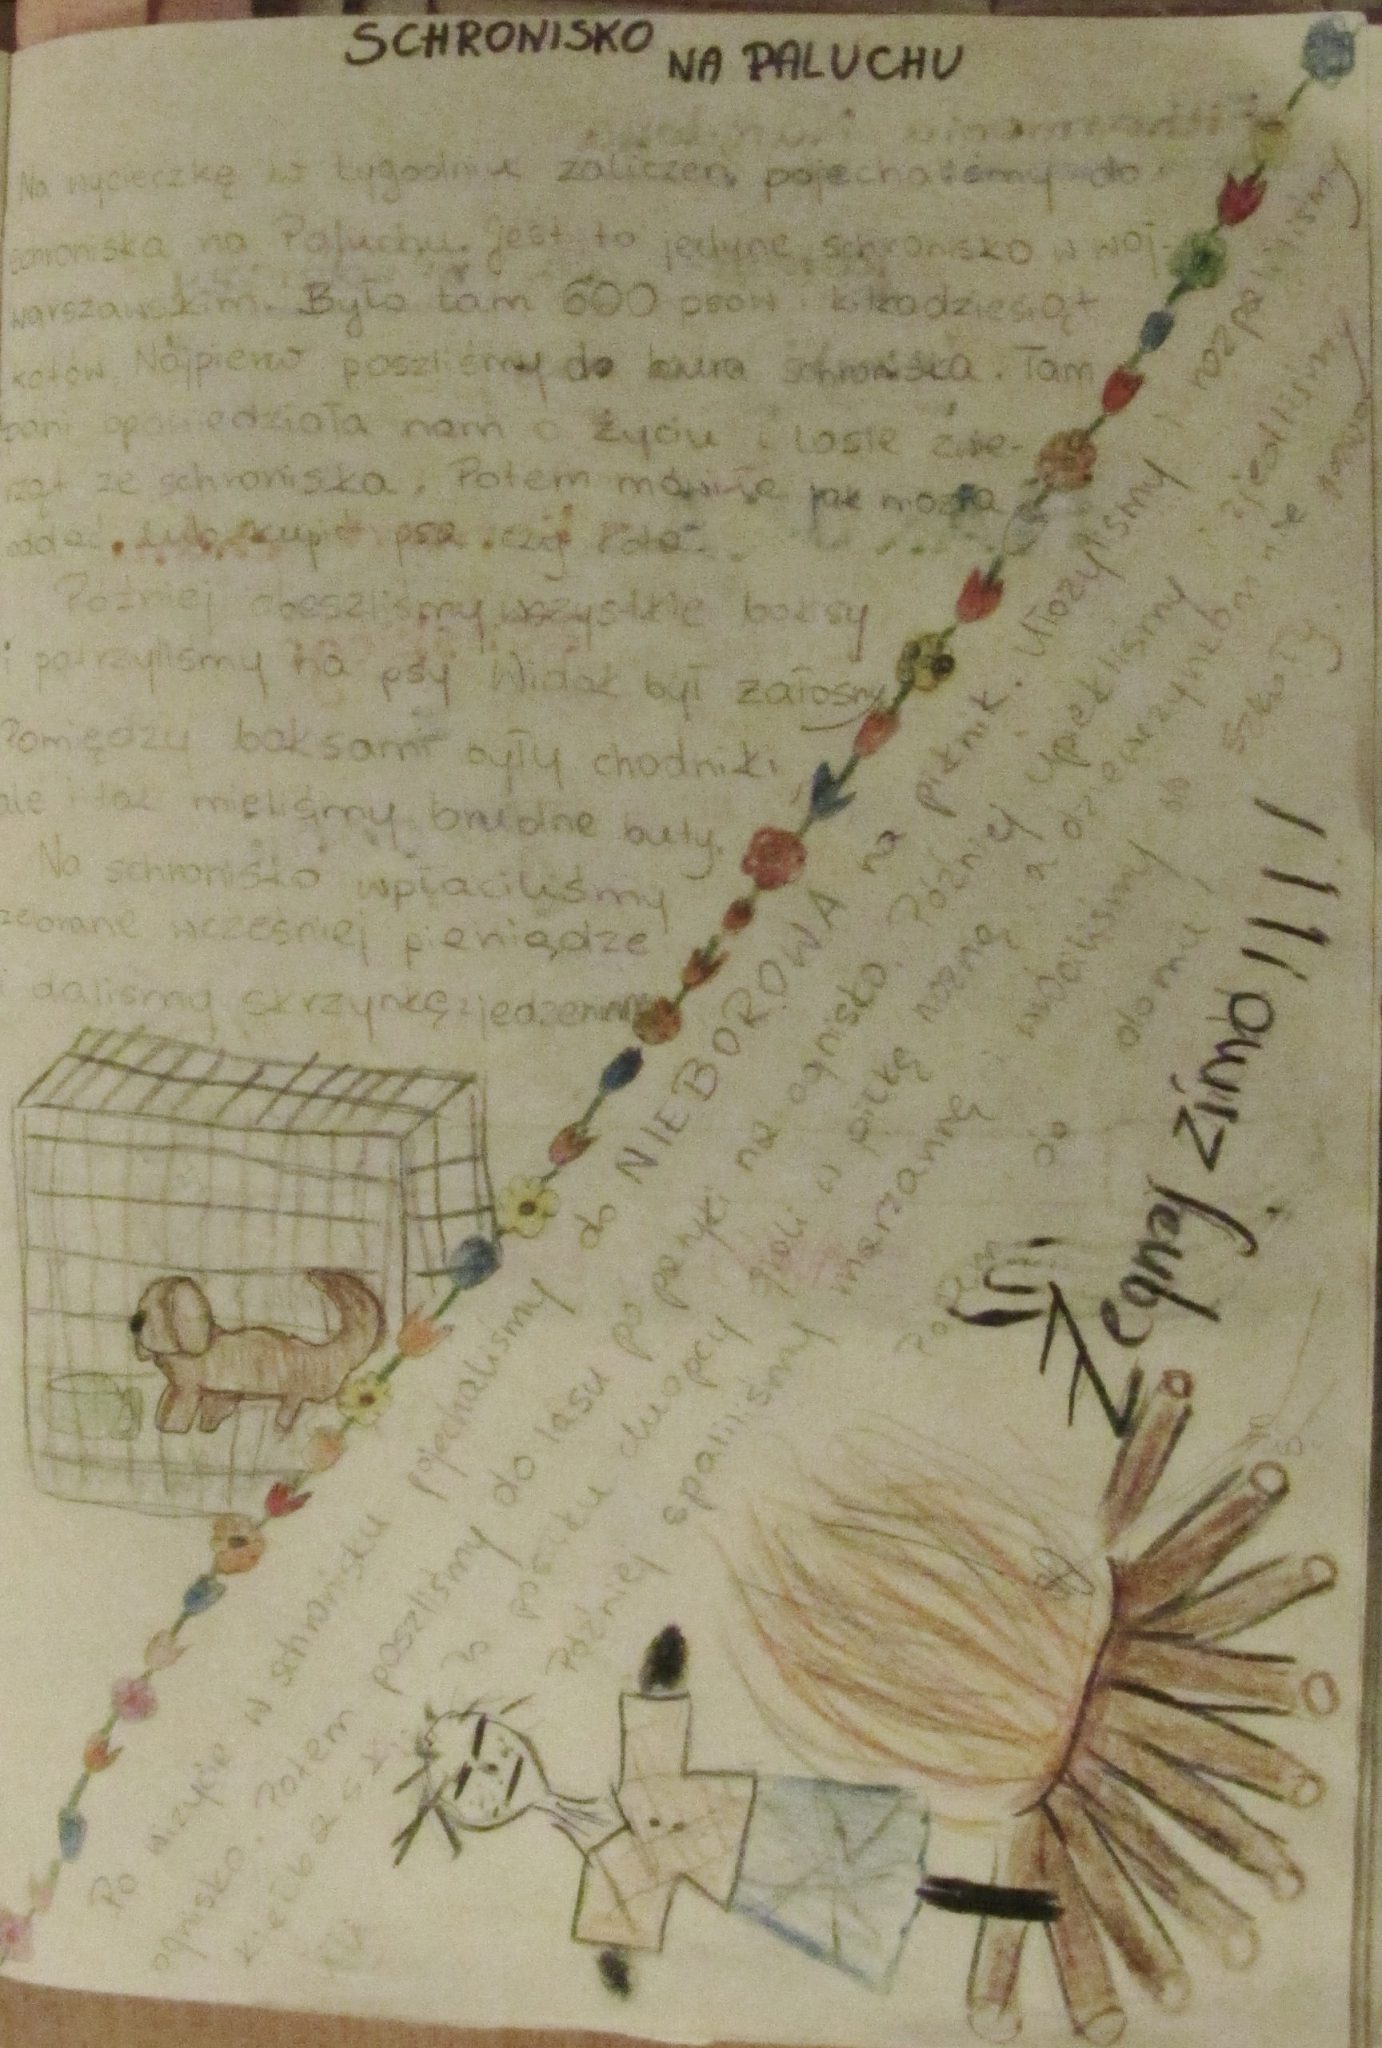 SCHRONISKO NA PALUCHU
Na wycieczkę w tygodniu zaliczeń pojechaliśmy do
schroniska na Paluchu. Jest to jedyne schronisko w woj-
warszawskim. Było tam 600 psów i kilkadziesiąt
kotów. Najpierw poszliśmy do biura schroniska. Tam
pani opowiedziała nam o życiu i losie zwie-
rząt ze schroniska. Potem mówiła jak można
oddać lub kupić psa czy kota.
Później obeszliśmy wszystkie boksy
i patrzyliśmy na psy Widok był żałosny
Pomiędzy boksami były chodniki
ale i tak mieliśmy brudne buty.
Na schronisko wpłaciliśmy
zebrane wcześniej pieniądze
i daliśmy skrzynkę z jedzeniem
Po wizycie w schronisku pojechaliśmy do NIEBOROWA na piknik. Ułożyliśmy i rozpaliliśmy
ognisko. Potem poszliśmy do lasu po patyki na ognisko. Później upiekliśmy i zjedliśmy
kiełbaski. Po posiłku chłopcy grali w piłkę nożną a dziewczynkom nie
Później spaliliśmy marzannę i wróciliśmy do szkoły.
Potem do domu
Żegnaj zimo!!!!